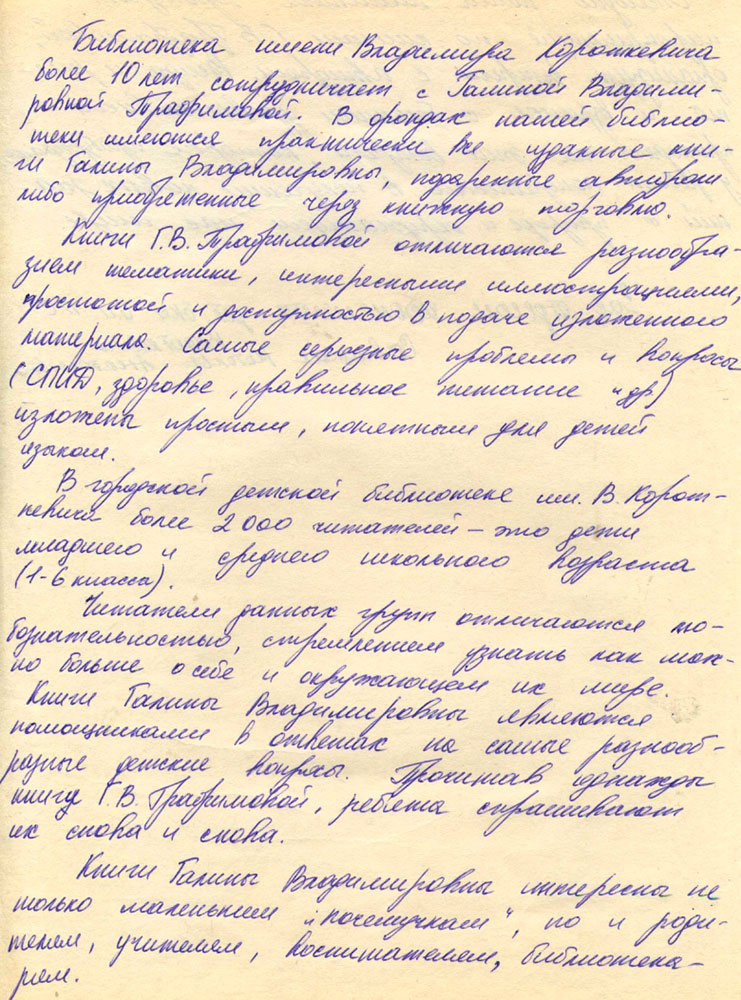 Библиотека имени Владимира Короткевича
более 10 лет сотрудничает с Галиной Владими-
ровной Трафимовой. В фондах нашей библио-
теки имеются практически все изданные кни-
ги Галины Владимировны, подаренные автором
либо приобретенные через книжную торговлю.
Книги Г.В. Трафимовой отличаются разнообра-
зием тематики, интересными иллюстрациями,
простотой и доступностью в подаче изложенного
материала. Самые серьезные проблемы и вопросы
(СПИД, здоровье, правильное питание и др)
изложены простым, понятным для детей
языком.
В городской детской библиотеке им. В. Корот-
кевича более 2000 читателей – это дети
младшего и среднего школьного возраста
(1-6 класса).
Читатели данных групп отличаются лю-
бознательностью, стремлением узнать как мож-
но больше о себе и окружающем их мире.
Книги Галины Владимировны являются
помощниками в ответах на самые разнооб-
разные детские вопросы. Прочитав однажды
книгу Г.В. Трафимовой, ребята спрашивают
их снова и снова.
Книги Галины Владимировны интересны не
только маленьким „почемучкам", но и роди-
телям, учителям, воспитателям, библиотека-
рям.